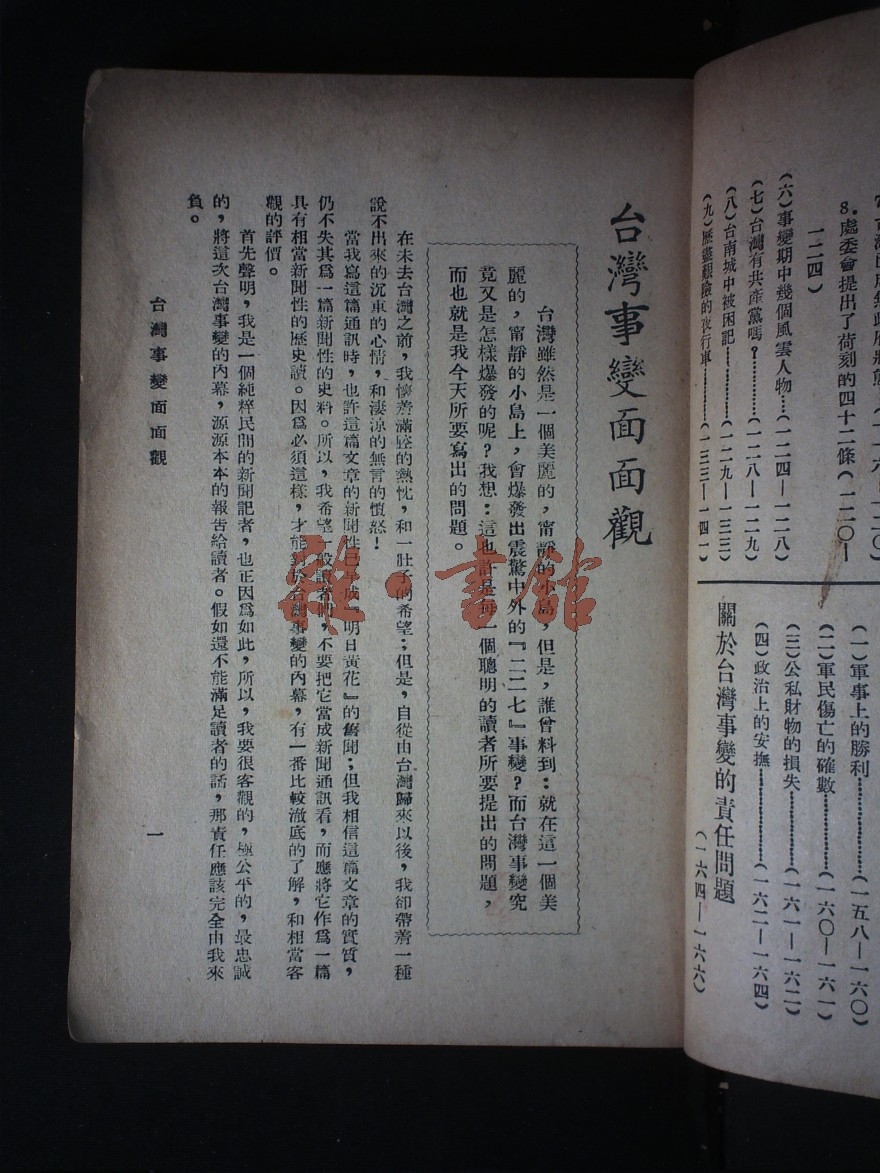 8.處委會提出了荷刻的四十二條(一二〇—
一二四)
(六)事變期中幾個風雲人物……(一二四—一二八)
(七)台灣有共產黨嗎?…………(一二八—一二九)
(八)台南城中被困記……………(一二九—一三三)
(九)歷盡艱險的夜行軍…………(一三三—一四一)
(一)軍事上的勝利………………(一五八—一六〇)
(二)軍民傷亡的確數……………(一六〇—一六一)
(三)公私財物的損失……………(一六一—一六二)
(四)政治上的安撫………………(一六二—一六四)
關於台灣事變的責任問題
(一六四—一六六)
台灣事變面面觀
台灣雖然是一個美麗的,甯靜的小島,但是,誰曾料到:就在這一個美
麗的,甯靜的小島上,會爆發出震驚中外的『二二七』事變?而台灣事變究
竟又是怎樣爆發的呢?我想:這也許是每一個聰明的讀者所要提出的問題,
而也就是我今天所要寫出的問題。
在未去台灣之前,我懷着滿腔的熱忱,和一肚子的希望;但是,自從由台灣歸來以後,我卻帶着一種
說不出來的沉重的心情,和淒涼的無言的憤怒!
當我寫這篇通訊時,也許這篇文章的新聞性已變成『明日黃花』的舊聞;但我相信這篇文章的實質,
仍不失其爲一篇新聞性的史料。所以,我希望一般讀者們,不要把它當成新聞通訊看,而應將它作爲一篇
具有相當新聞性的歷史讀。因爲必須這樣,才能對於台灣事變的內幕,有一番比較澈底的了解,和相當客
觀的評價。
首先聲明,我是一個純粹民間的新聞記者,也正因爲如此,所以,我要很客觀的,極公平的,最忠誠
的,將這次台灣事變的內幕,源源本本的報告給讀者。假如還不能滿足讀者的話,那責任應該完全由我來
負。
台灣事變面面觀
一
雅·書館